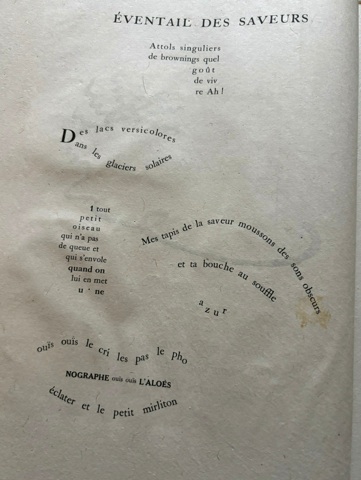 ÉVENTAIL DES SAVEURS
Attols singuliers
de brownings quel
goût
de viv
re Ah !
Des lacs versicolores
Dans les glaciers solaires
1 tout
petit
oiseau
qui n'a pas
de queue et
qui s'envole
quand on
lui en met
u ne
Mes tapis de la saveur moussons des sons obscurs
et ta bouche au souffle
azur
ouïs ouïs le cri les pas le Pho
NOGRAPHE ouïs ouïs L'ALOÈS
éclater et le petit mirliton